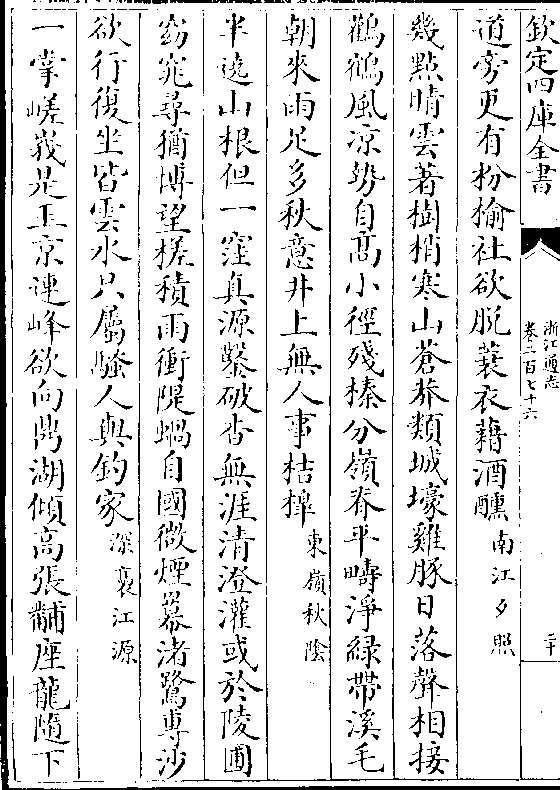 欽定四庫全書
浙江通志
卷二百七十六
二十
道旁更有枌榆社欲脱蓑衣藉酒醺南江夕照
幾點晴雲著樹梢寒山蒼莽類城壕雞豚日落聲相接
鸛鶴風凉勢自髙小徑殘榛分嶺脊平疇淨緑帶溪毛
朝來雨足多秋意井上無人事桔槹東嶺秋陰
半逺山根但一窪真源鑿破杳無涯清澄灌或於陵圃
窈窕尋猶博望槎積雨衝隄蝸自國微煙羃渚鷺専沙
欲行復坐皆雲水只屬騷人與釣家深裏江源
一掌嵯峩是玉京連峰欲向鼎湖傾高張黼座龍隨下